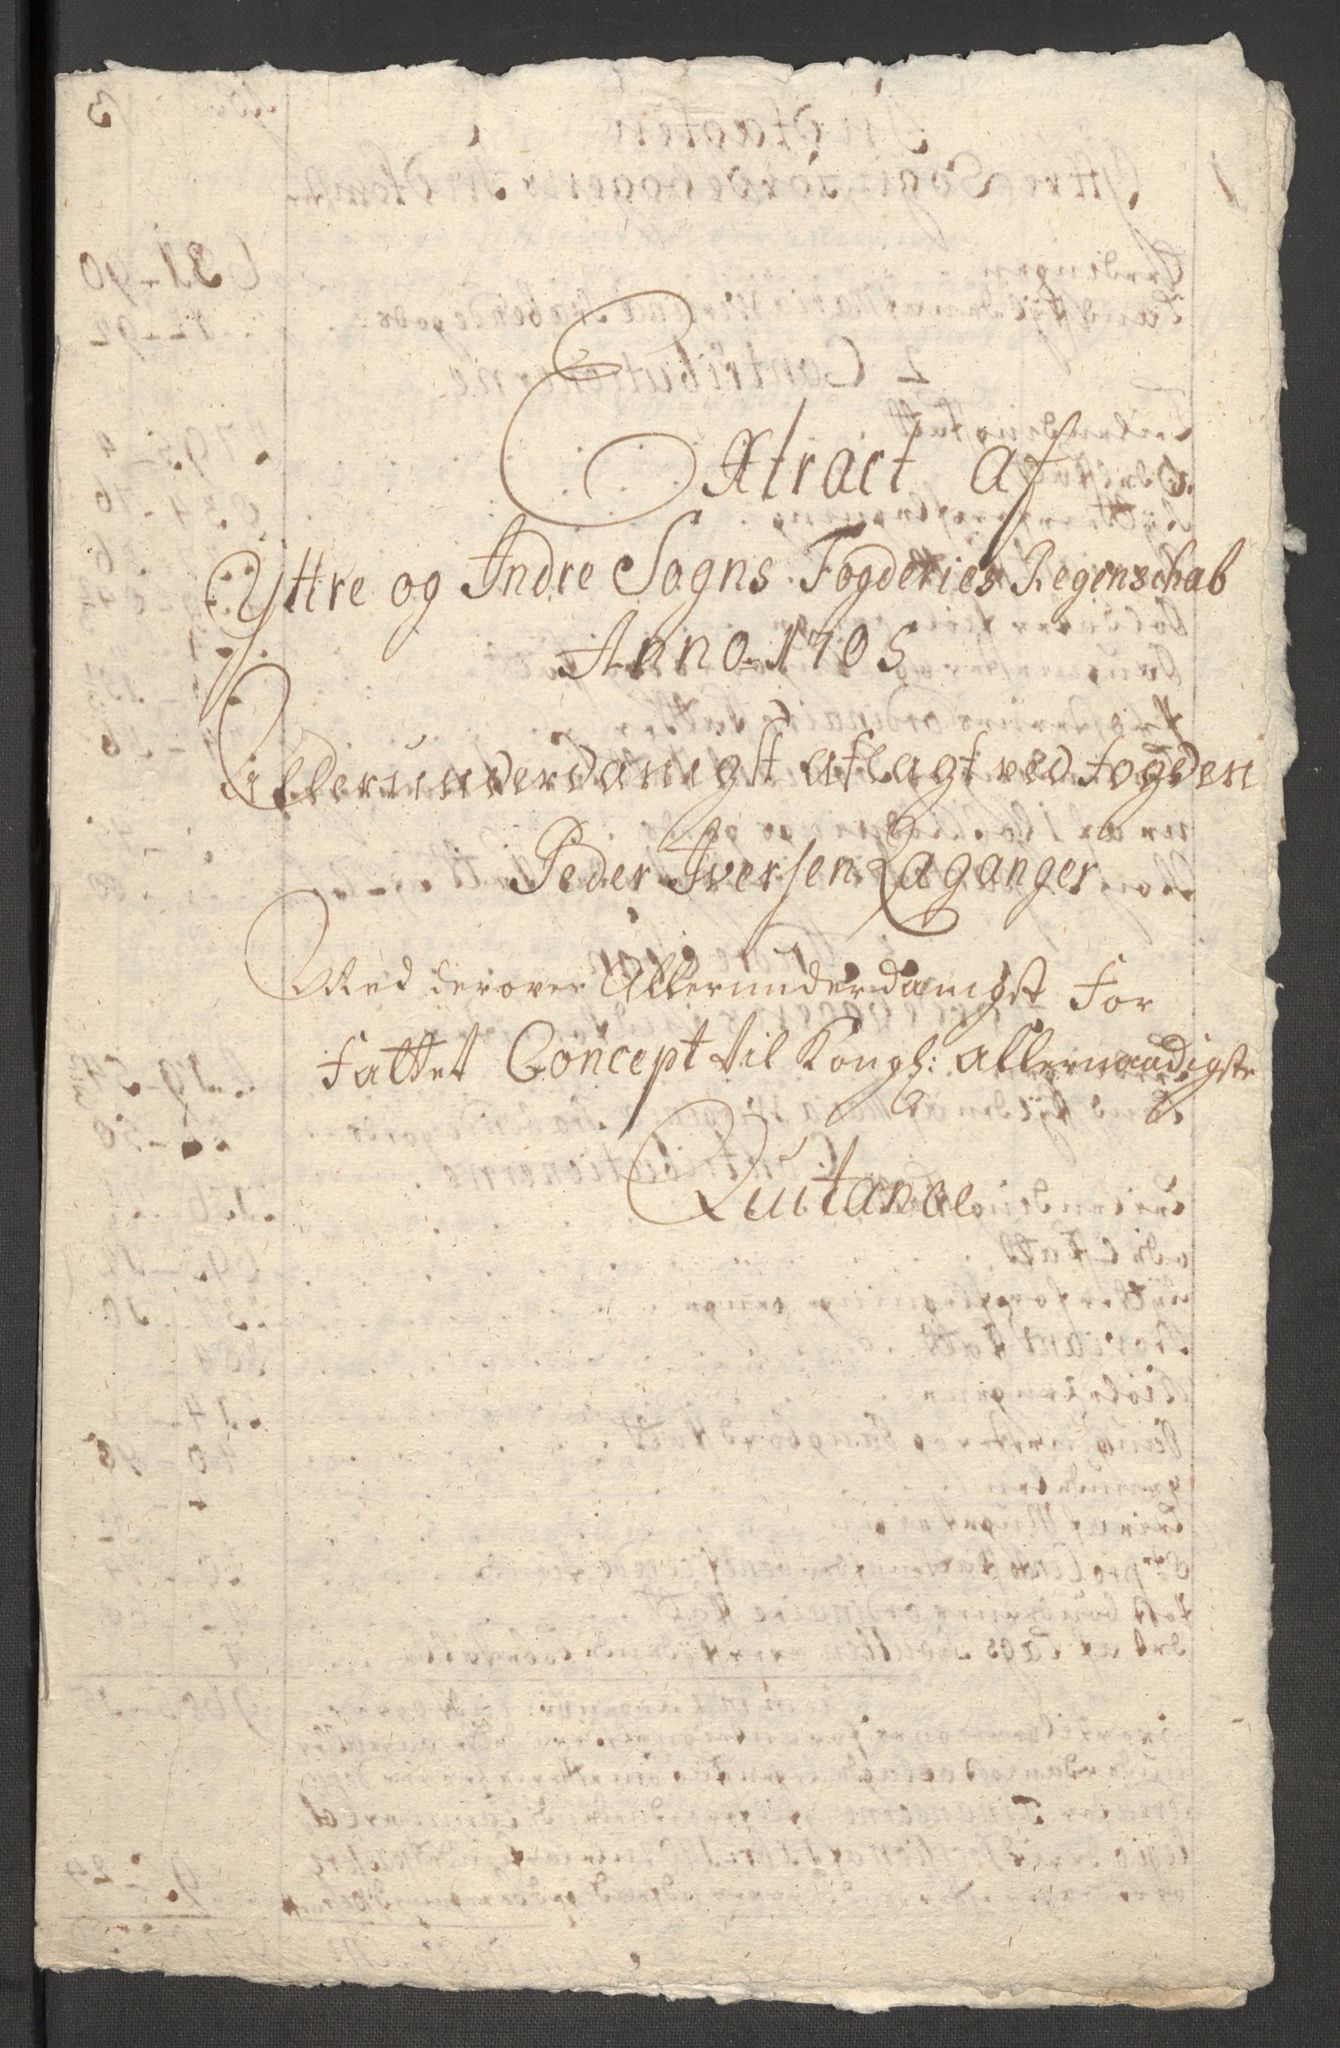 Extract af
Yttre og Indre Sogns Fogderies Regenschab
Anno 1705
Allerunderdanigst aflagt ved fogden
Peder Iversen Laganger
Med derover Allerunderdanigst For
fattet Concept til Kongl: allernaadigste
Quitance